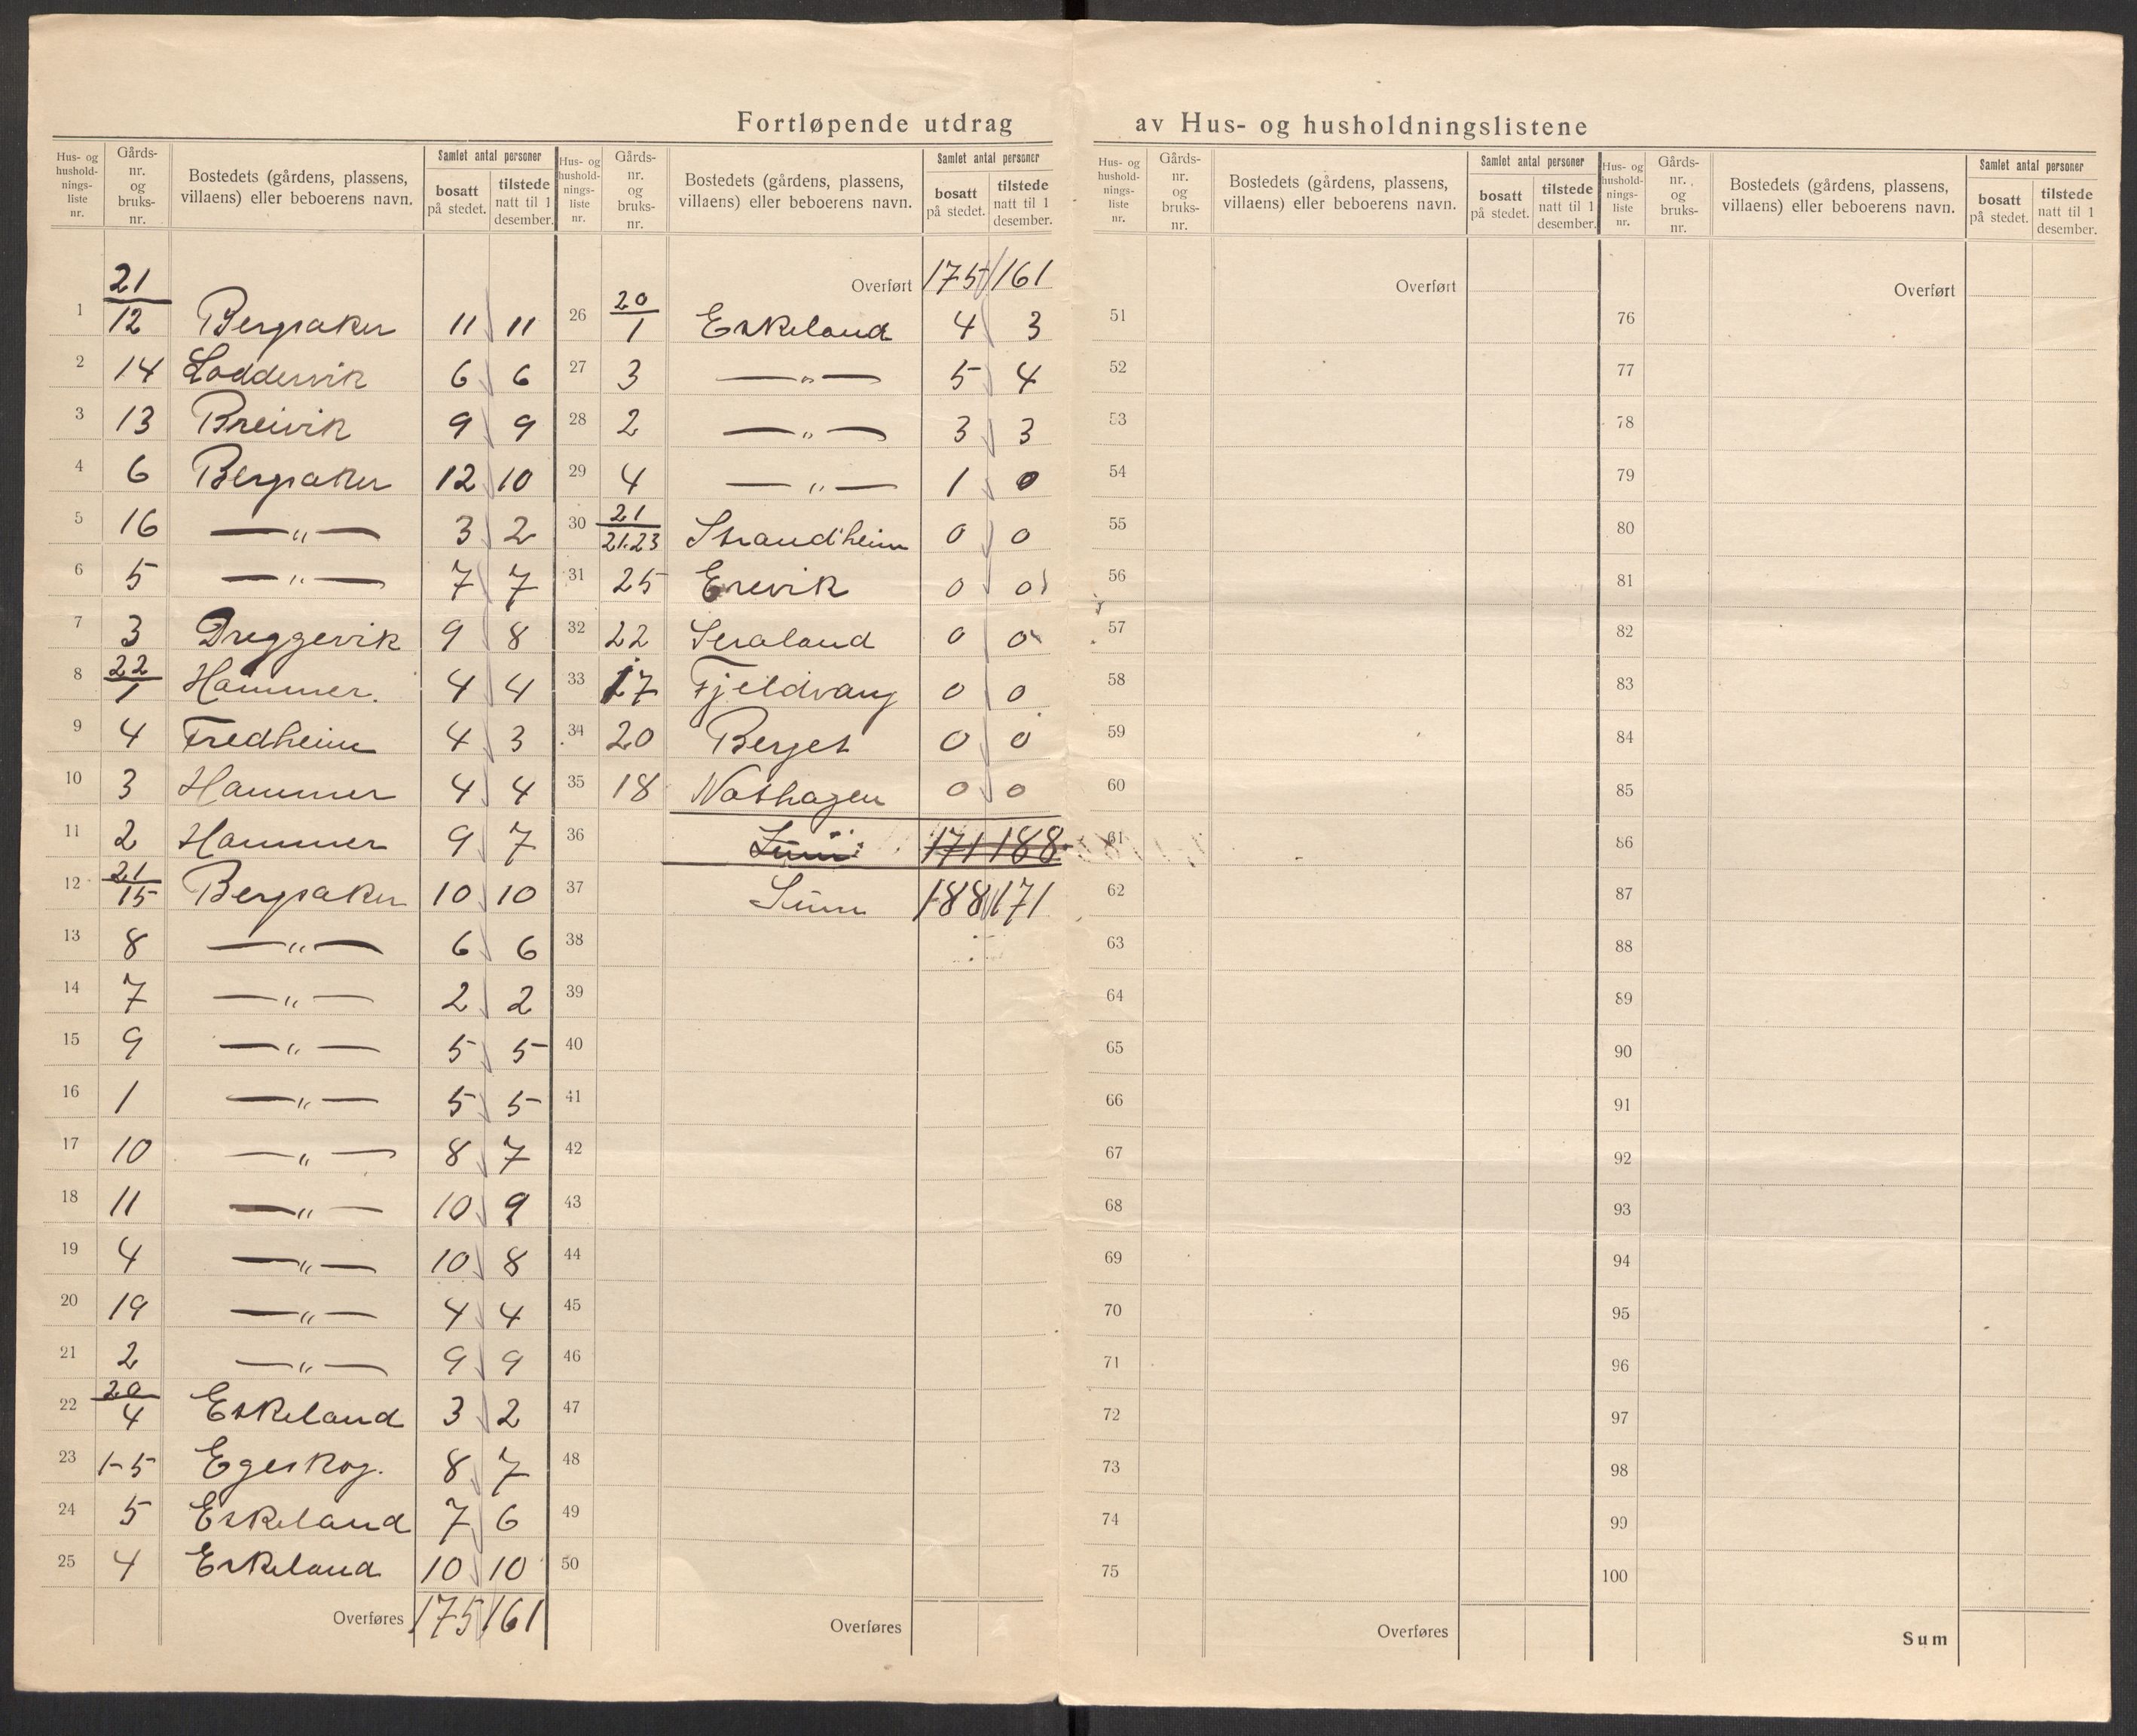 Fortløpende utdrag av Hus- og husholdningslistene
Hus- og husholdningsliste nr. Gårdsnr. og bruksnr. Bostedets (gårdens, plassens, villaens) eller beboerens navn. Samlet antal personer bosatt på stedet. tilstede natt til 1 desember.
Hus- og husholdningsliste nr. Gårdsnr. og bruksnr. Bostedets (gårdens, plassens, villaens) eller beboerens navn. Samlet antal personer bosatt på stedet. tilstede natt til 1 desember.
Hus- og husholdningsliste nr. Gårdsnr. og bruksnr. Bostedets (gårdens, plassens, villaens) eller beboerens navn. Samlet antal personer bosatt på stedet. tilstede natt til 1 desember.
Hus- og husholdningsliste nr. Gårdsnr. og bruksnr. Bostedets (gårdens, plassens, villaens) eller beboerens navn. Samlet antal personer bosatt på stedet. tilstede natt til 1 desember.
1 21/12 Bergsaker 11 11
2 14 Loddervik 6 6
3 13 Breivik 9 9
4 6 Bergsaker 12 10
5 16 —"— 3 2
6 5 —"— 7 7
7 3 Dreggevik 9 8
8 22/1 Hammer. 4 4
9 4 Fredheim 4 3
10 3 Hammer 4 4
11 2 Hammer 9 7
12 21/15 Bergsaker 10 10
13 8 —"— 6 6
14 7 —"— 2 2
15 9 —"— 5 5
16 1 —"— 5 5
17 10 —"— 8 7
18 11 —"— 10 9
19 4 —"— 10 8
20 19 —"— 4 4
21 2 —"— 9 9
22 20/4 Eskeland 3 2
23 1-5 Egeskog. 8 7
24 5 Eskeland 7 6
25 4 Eskeland 10 10
Overføres 175 161
Overført 175 161
26 20/1 Eskeland 4 3
27 3 —"— 5 4
28 2 —"— 3 3
29 4 —"— 1 0
30 21/21.23 Strandheim 0 0
31 25 Enevik 0 0
32 22 Seraland 0 0
33 17 Fjeldvang 0 0
34 20 Berget 0 0
35 18 Nothagen 0 0
36 Sum 171 188
37 Sum 188 171
38
39
40
41
42
43
44
45
46
47
48
49
50
Overføres
Overført
51
52
53
54
55
56
57
58
59
60
61
62
63
64
65
66
67
68
69
70
71
72
73
74
75
Overføres
Overført
76
77
78
79
80
81
82
83
84
85
86
87
88
89
90
91
92
93
94
95
96
97
98
99
100
Sum